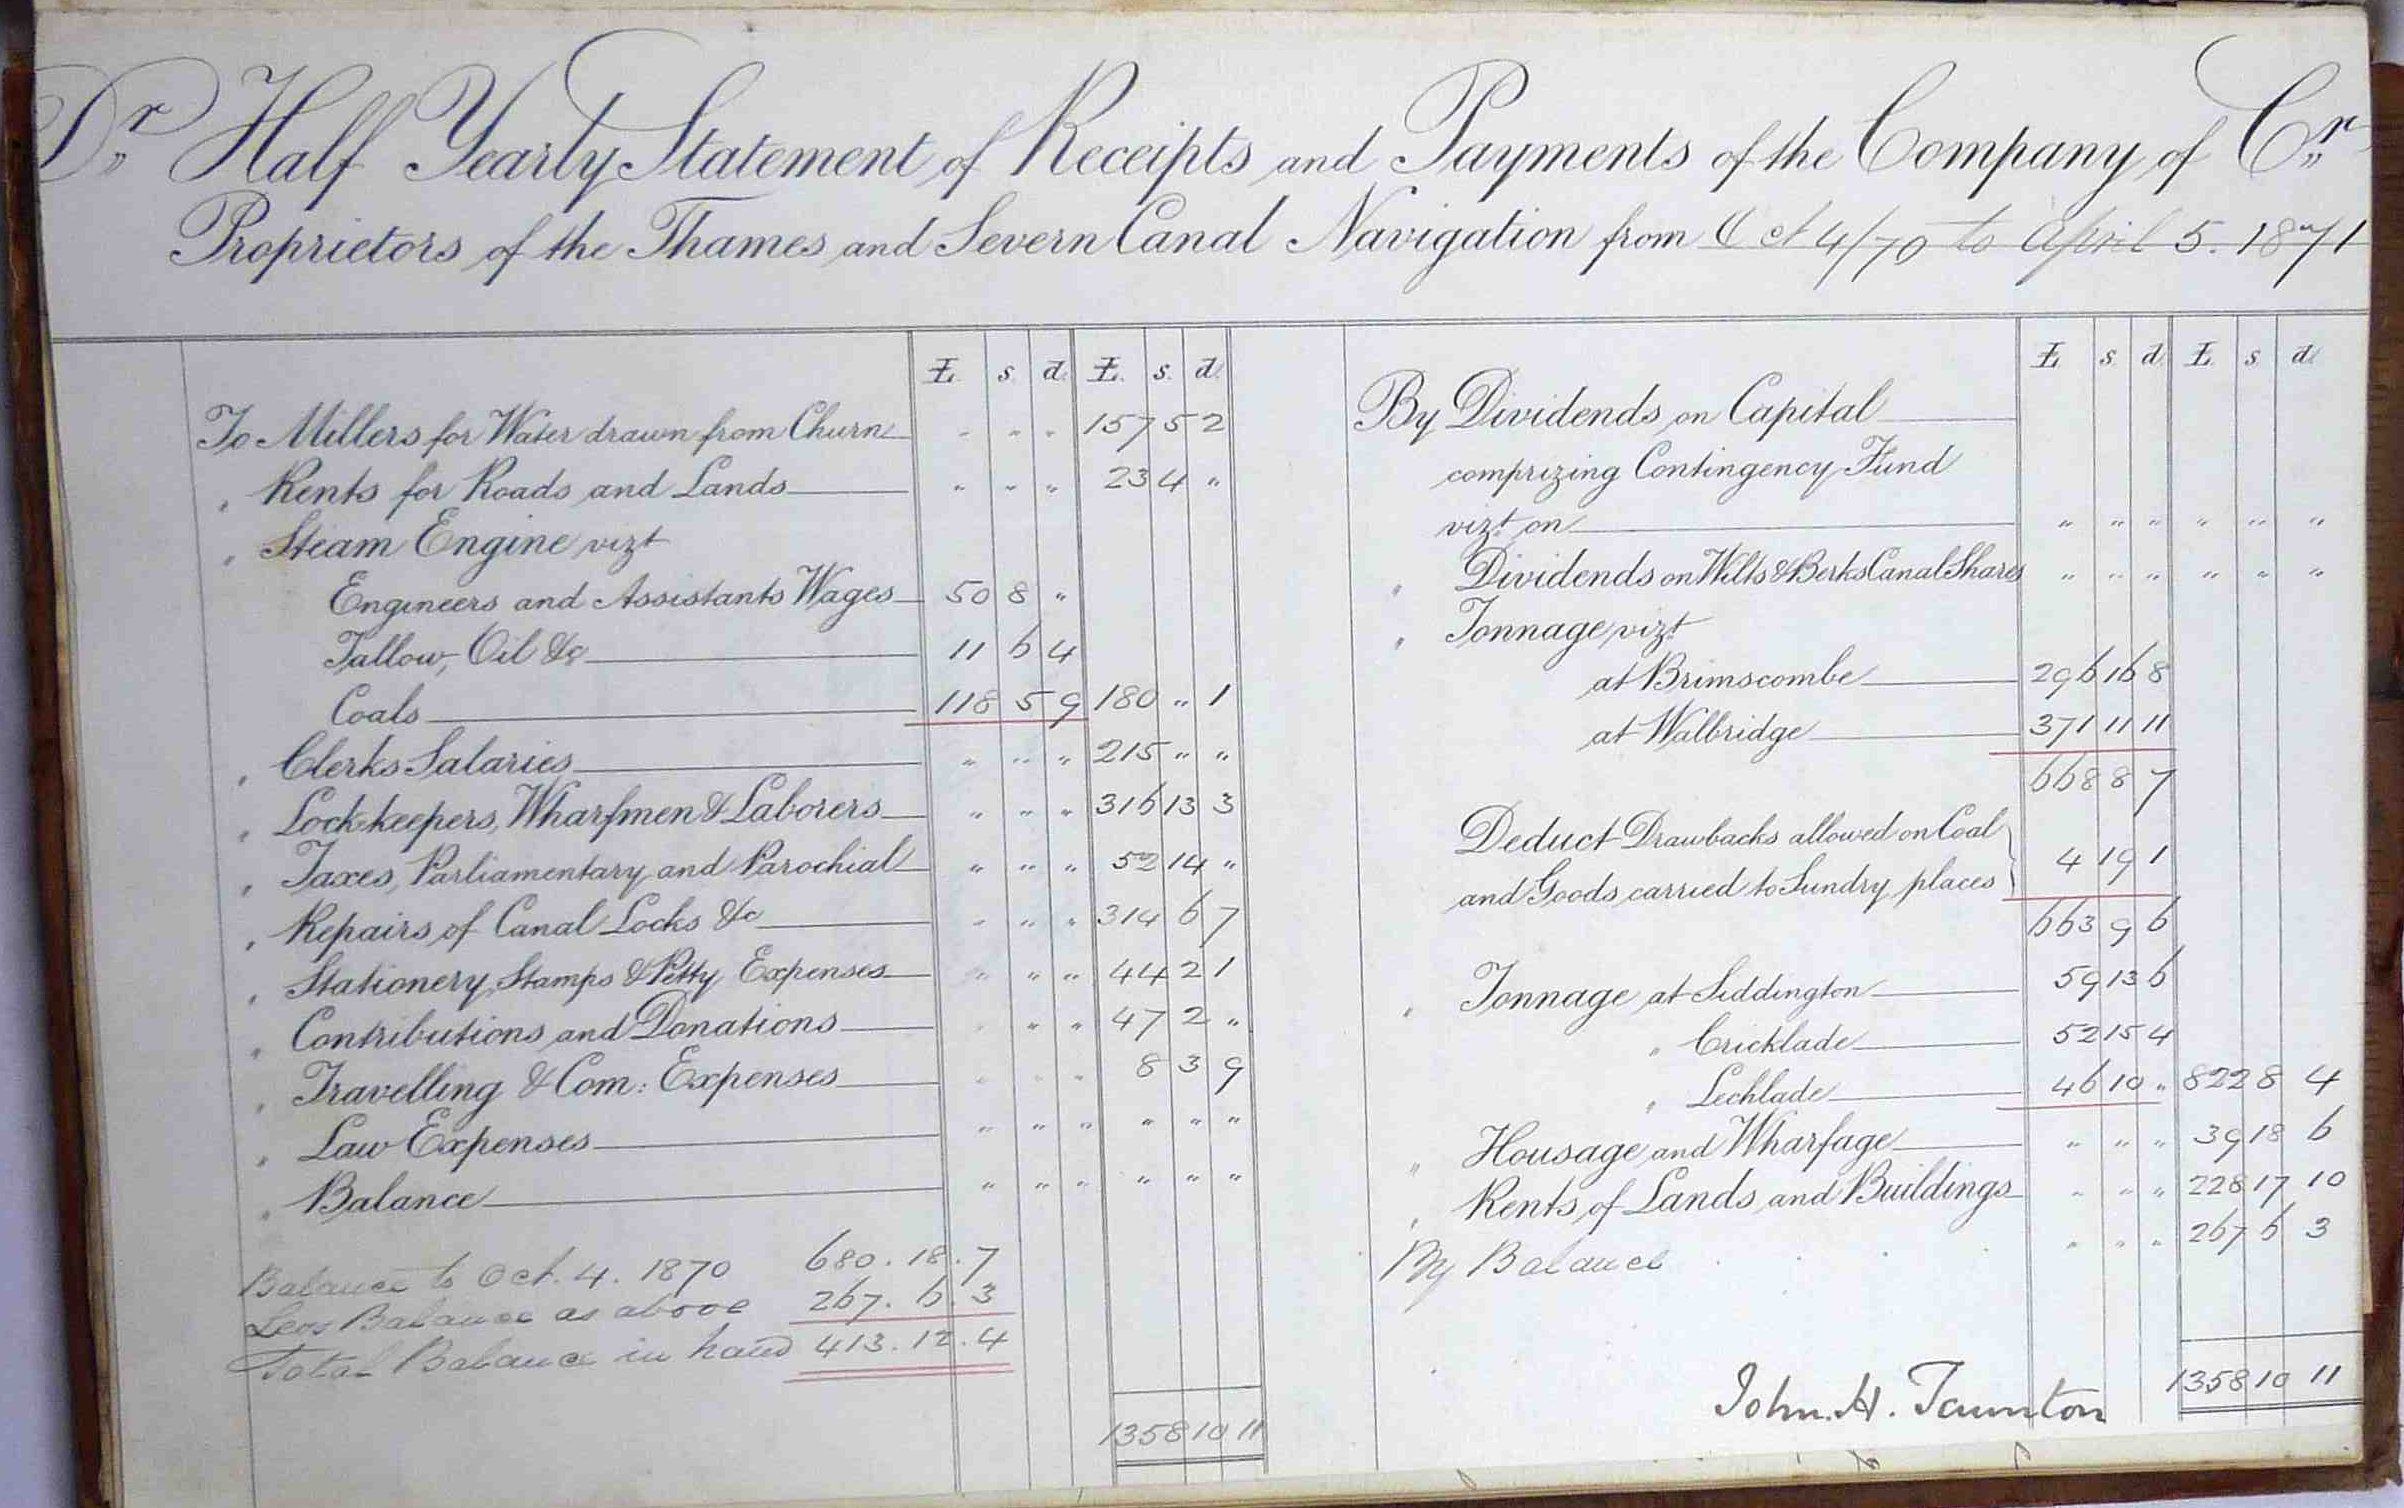 Dr Half Yearly Statement of Receipts and Payments of the Company of Cr
Proprietors of the Thames and Severn Canal Navigation from Oct 4/70 to April 5. 1871
£ s. d. £ s. d.
To Millers for Water drawn from Churn " " " 157 5 2
" Rents for Roads and Lands " " " 23 4 "
" Steam Engine vizt
Engineers and Assistants Wages 50 8 "
Tallow, Oil &c 11 6 4
Coals 118 5 9 180 " 1
" Clerks Salaries " " " 215 " "
" Lock-keepers, Wharfmen & Laborers " " " 316 13 3
" Taxes, Parliamentary and Parochial " " " 52 14 "
" Repairs of Canal Locks &c " " " 314 6 7
" Stationery, Stamps & Petty Expenses " " " 44 2 1
" Contributions and Donations " " " 47 2 "
" Travelling & Com: Expenses " " " 8 3 9
" Law Expenses " " " " " "
" Balance " " " " " "
Balance to Oct. 4. 1870 680. 18. 7
Less Balance as above 267. 6. 3
Total Balance in hand 413. 12. 4
1358 10 11
£ s d £ s d
By Dividends on Capital
comprizing Contingency Fund
vizt on " " " " " "
" Dividends on Wilts & Berks Canal Shares " " " " " "
" Tonnage vizt
at Brimscombe 296 16 8
at Walbridge 371 11 11
668 8 7
Deduct Drawbacks allowed on Coal
and Goods carried to Sundry places 4 19 1
663 9 6
" Tonnage at Siddington 59 13 6
" Cricklade 52 15 4
" Lechlade 46 10 " 822 8 4
" Housage and Wharfage " " " 39 18 6
" Rents of Lands and Buildings " " " 228 17 10
By Balance " " " 267 6 3
1358 10 11
John. H. Taunton